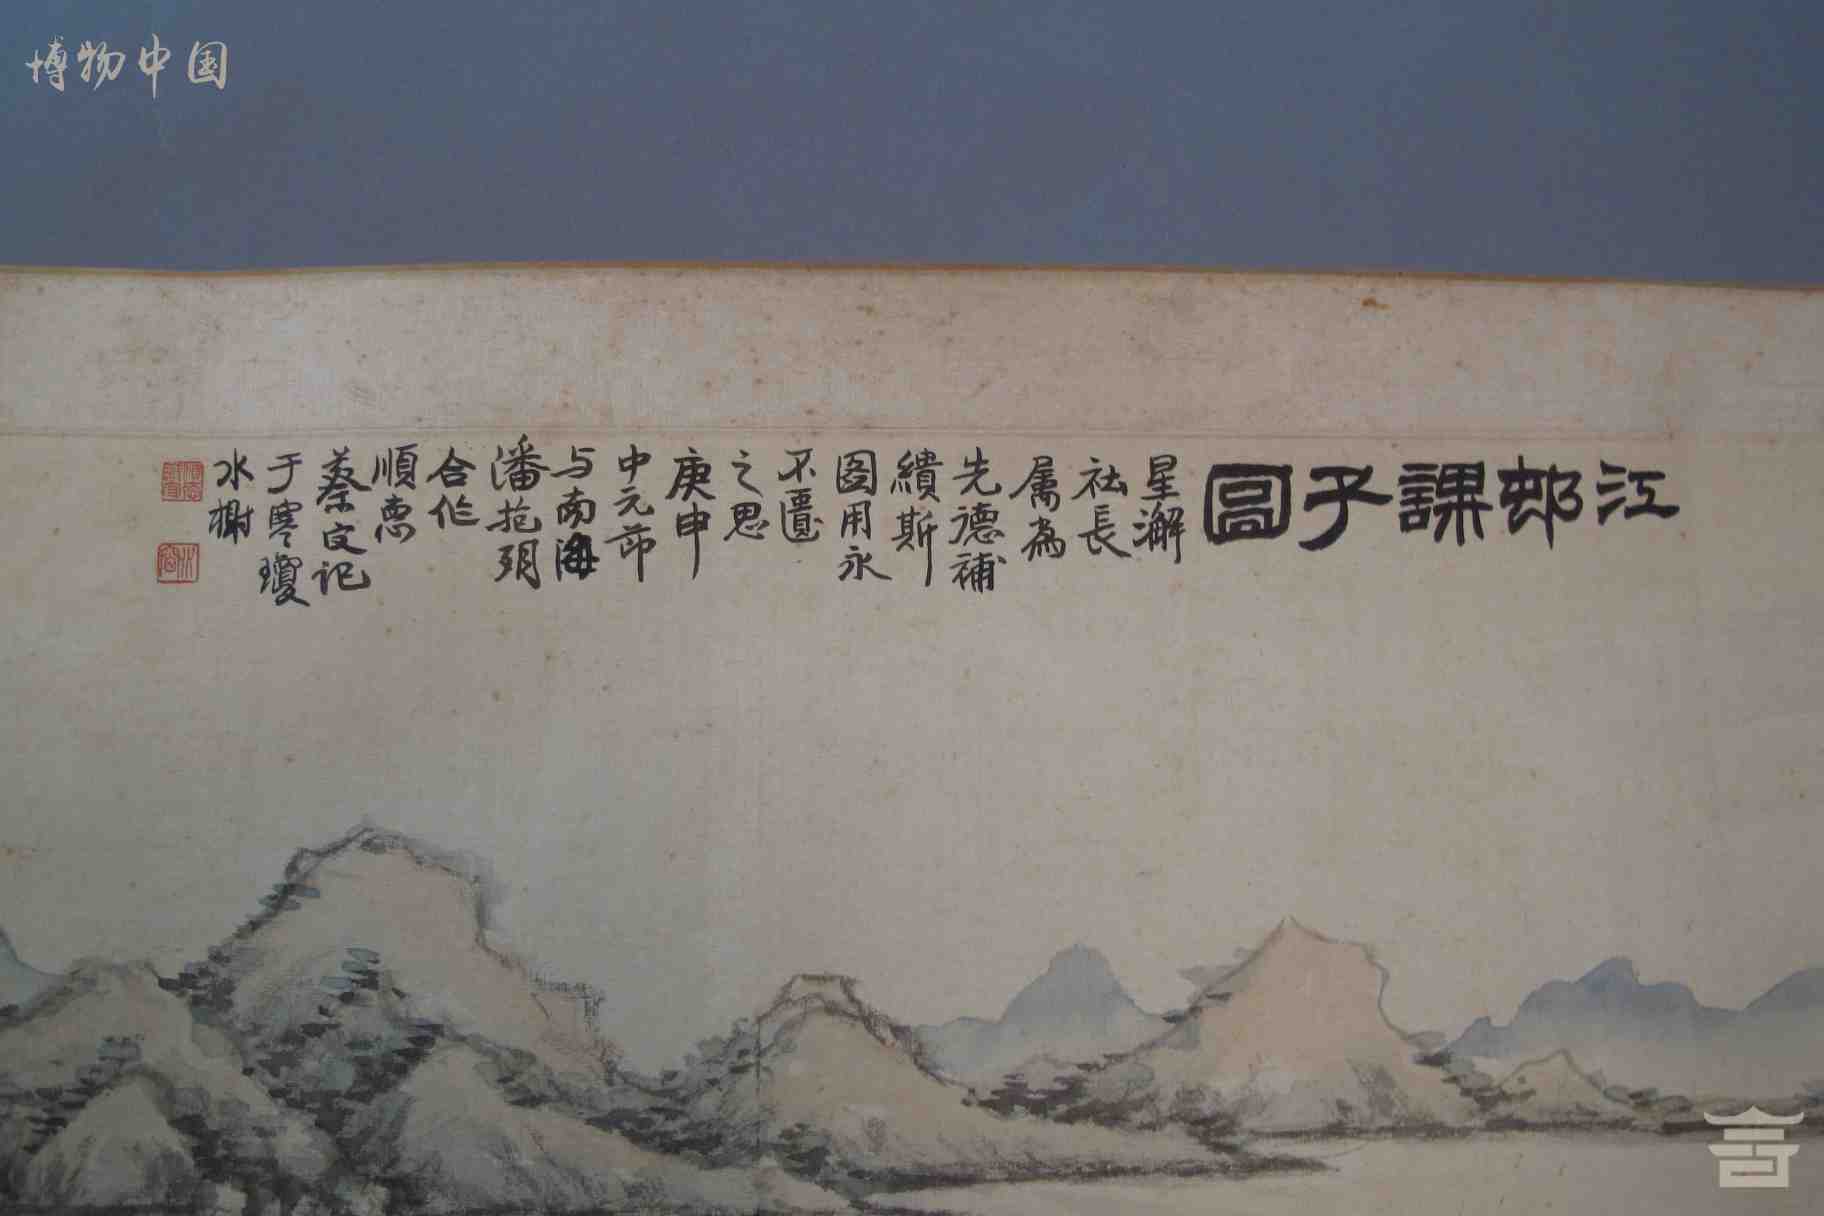 博物中国
江邨課子圖
星澥
社長
属為
先德補
繢斯
圖用永
不匱
之思
庚申
中元节
与南海
潘抱玥
合作
順悳
蔡守记
于寒瓊
水榭